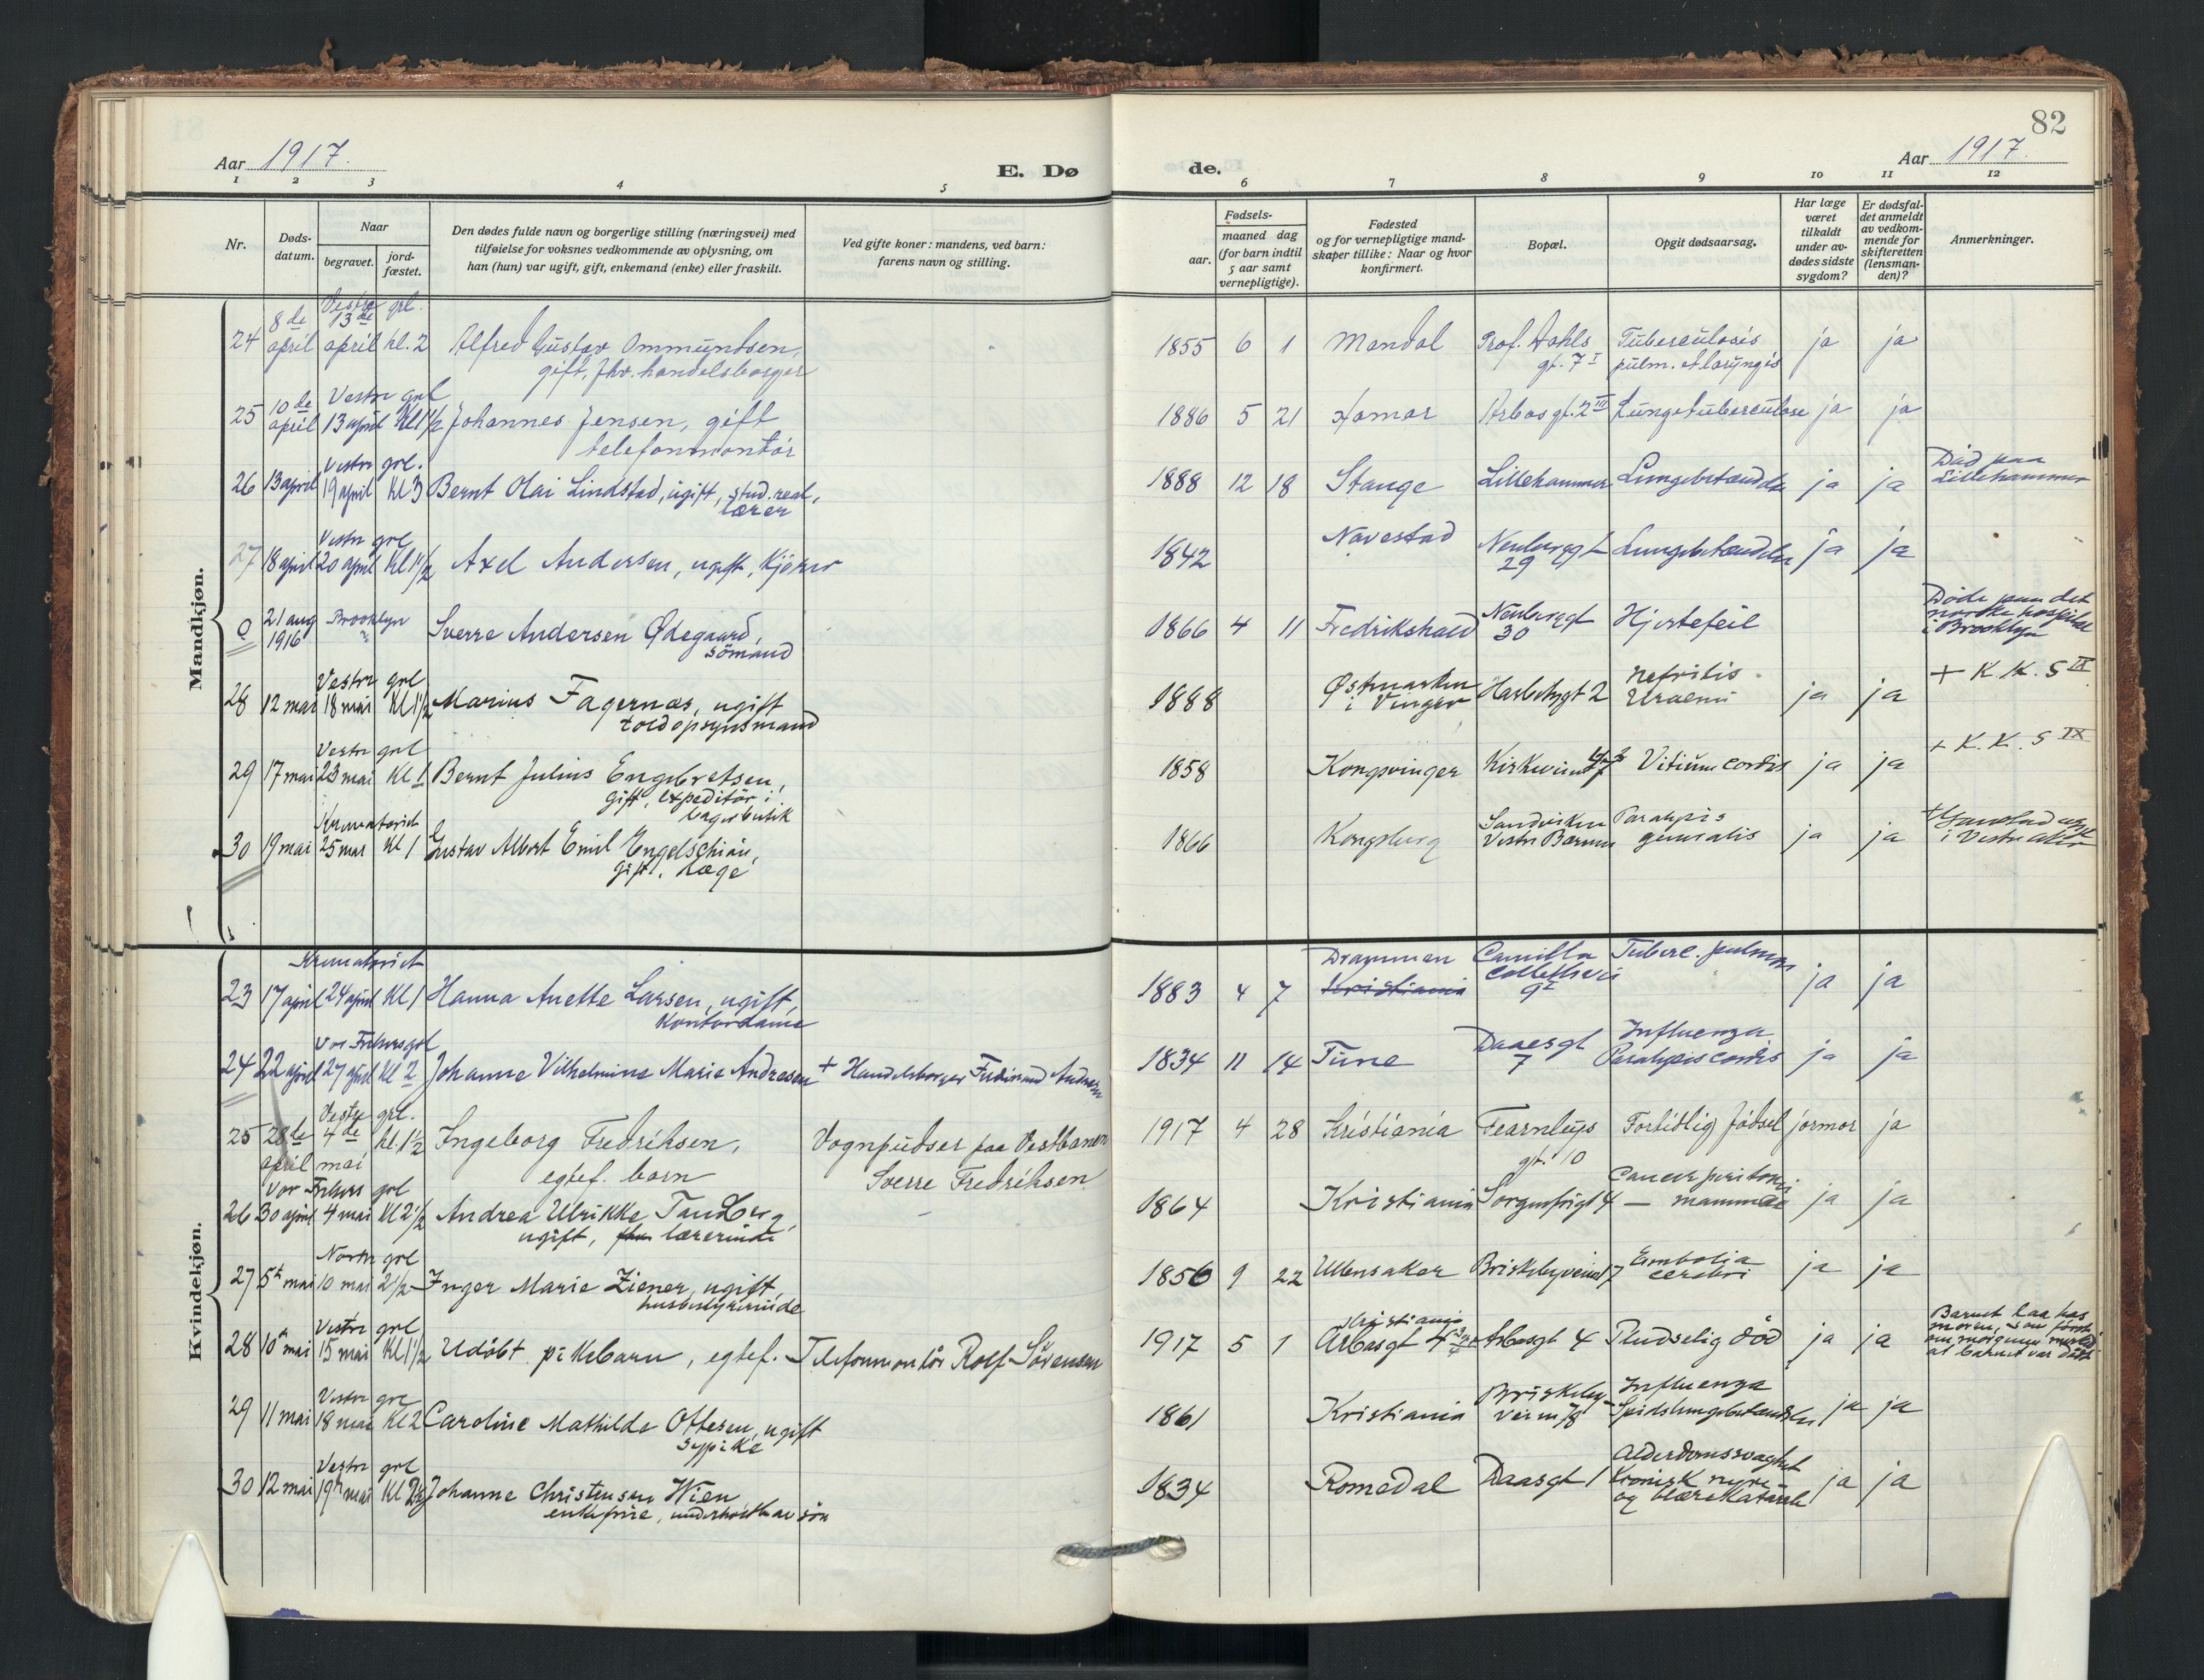 82
Aar 1917.
E. Døde.
Aar 1917.
1 2 3 4 5 6 7 8 9 10 11 12
Nr.
Døds-
datum.
Naar
begravet.
jord-
fæstet.
Den dødes fulde navn og borgerlige stilling (næringsvei) med
tilføielse for voksnes vedkommende av oplysning, om
han (hun) var ugift, gift, enkemand (enke) eller fraskilt.
Ved gifte koner: mandens, ved barn:
farens navn og stilling.
Fødsels-
aar.
maaned dag
(for barn indtil
5 aar samt
vernepligtige).
Fødested
og for vernepligtige mand-
skaper tillike: Naar og hvor
konfirmert.
Bopæl.
Opgit dødsaarsag.
Har læge
været
tilkaldt
under av-
dødes sidste
sygdom?
Er dødsfal-
det anmeldt
av vedkom-
mende for
skifteretten
(lensman-
den)?
Anmerkninger.
Mandkjøn.
8de Vestre 13de grl.
24 april april kl. 2 Alfred Gustav Ommundsen, 1855 6 1 Mandal Prof. Dahls Tuberculosis ja ja
gift, fhv. handelsborger gt. 7 I pulm. et laryngis
10de Vestre grl
25 april 13 april Kl 1 1/2 Johannes Jensen, gift 1886 5 21 Hamar Arbos gt. 2 III Lungetuberculose ja ja
telefonmontör
Vestre grl.
26 13 april 19 april Kl 3 Bernt Olai Lindstad, ugift, stud. real, 1888 12 18 Stange Lillehammer Lungebetændelse ja ja Död paa
lærer Lillehammer
Vestre grl
27 18 april 20 april Kl 1 1/2 Axel Andersen, ugift, Kjörer 1842 Navestad Neuberggt Lungebetændelse ja ja
29
0 21 aug Brooklyn Sverre Andersen Ødegaard, 1866 4 11 Fredrikshald Neuberggt Hjertefeil Döde paa det
1916 sömand 30 norske hospital
i Brooklyn
Vestre grl
28 12 mai 18 mai Kl 1 1/2 Marius Fagernæs, ugift 1888 Østmarken Nefritis ja ja + K. K. S IX
toldopsynsmand i Vinger 2 Uraemi
Vestre grl
29 17 mai 23 mai Kl 1 Bernt Julius Engebretsen, 1858 Kongsvinger Vitium cordis ja ja + K. K. S IX
gift, expeditör i
bagerbutik
Krematoriet
30 19 mai 25 mai Kl 1 Gustav Albert Emil Engelschiön, 1866 Kongsberg Sandviken Paralysis ja ja
gift, Læge Vestre Bærum generalis i Vestre Aker
Kvindekjøn.
Krematoriet
23 17 april 24 april Kl 1 Hanna Anette Larsen, ugift, 1883 4 7 Drammen Camilla Tuberc. pulmon ja ja
Kontordame Kristiania Colletsvei
9
Vor Frelsers grl
24 22 april 27 april Kl 2 Johanne Vilhelmine Marie Andresen + Handelsborger Ferdinand Andresen 1834 11 14 Tune Daaesgt Influenza ja ja
7 Paralysis cordis
Vestre grl.
25 28de 4de kl. 1 1/2 Ingeborg Fredriksen, Vognpudser paa Vestbanen 1917 4 28 Kristiania Fearnleys Fortidlig födsel jormor ja
april mai egtef. barn Sverre Fredriksen gt. 10
Vor Frelsers grl
26 30 april 4 mai Kl 2 1/2 Andrea Ulrikke Tandberg, 1864 Kristiania Sorgenfrigt 4 Cancer peritonei ja ja
ugift, lærerinde — mammae
Nordre grl
27 5te mai 10 mai 2 1/2 Inger Marie Ziener, ugift, 1856 9 22 Ullensaker Briskebyveien 7 Embolia ja ja
husbestyrerinde cerebri
Vestre grl
28 10 mai 15 mai Kl 1 1/2 Udöbt pikebarn, egtef. Telefonmontör Rolf Sörensen 1917 5 1 Kristiania Arbosgt 4 Pludselig död ja ja Barnet laa hos
Arbosgt 4 moren, som först
om morgenen merked
at barnet var dödt
Vestre grl
29 11 mai 18 mai Kl 2 Caroline Mathilde Ottesen, ugift 1861 Kristiania Briskeby- Influenza ja ja
sypike veien 78 Spidslungebetændelse
Vestre grl
30 12 mai 19 mai Kl Johanne Christensen Wien 1834 Romedal Daasgt 1 Alderdomssvaghet ja ja
enkefrue, underholdt av sön Kronisk nyre
og blærekatarrh